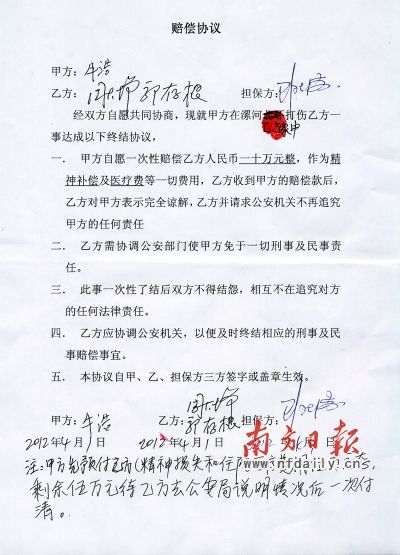 赔偿协议
甲方：牛浩
乙方： 郭存根 担保方：
经双方自愿共同协商，现就甲方在漯河 打伤乙方一
家中
事达成以下终结协议，
一． 甲方自愿一次性赔偿乙方人民币一十万元整，作为精
神补偿及医疗费等一切费用，乙方收到甲方的赔偿款后，
乙方对甲方表示完全谅解，乙方并请求公安机关不再追究
甲方的任何责任
二． 乙方需协调公安部门使甲方免于一切刑事及民事责
任。
三． 此事一次性了结后双方不得结怨，相互不在追究对方
的任何法律责任。
四． 乙方应协调公安机关，以便及时终结相应的刑事及民
事赔偿事宜。
五． 本协议自甲、乙、担保方三方签字或盖章生效。
甲方：牛浩 乙方： 郭存根 担保方：
2012年4月1日 2012年4月1日
南方日报
www.nfdaily.cn
注：甲方先预付乙方（精神损失和住院
剩余伍万元待乙方去公安局说明情况后一次付
清。